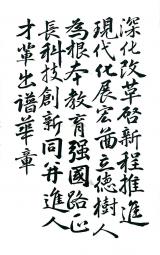 深化改革啟新程推進
現代化展宏猷立德樹人
為根本教育强國路正
長科技創新同并進人
才輩出譜華章